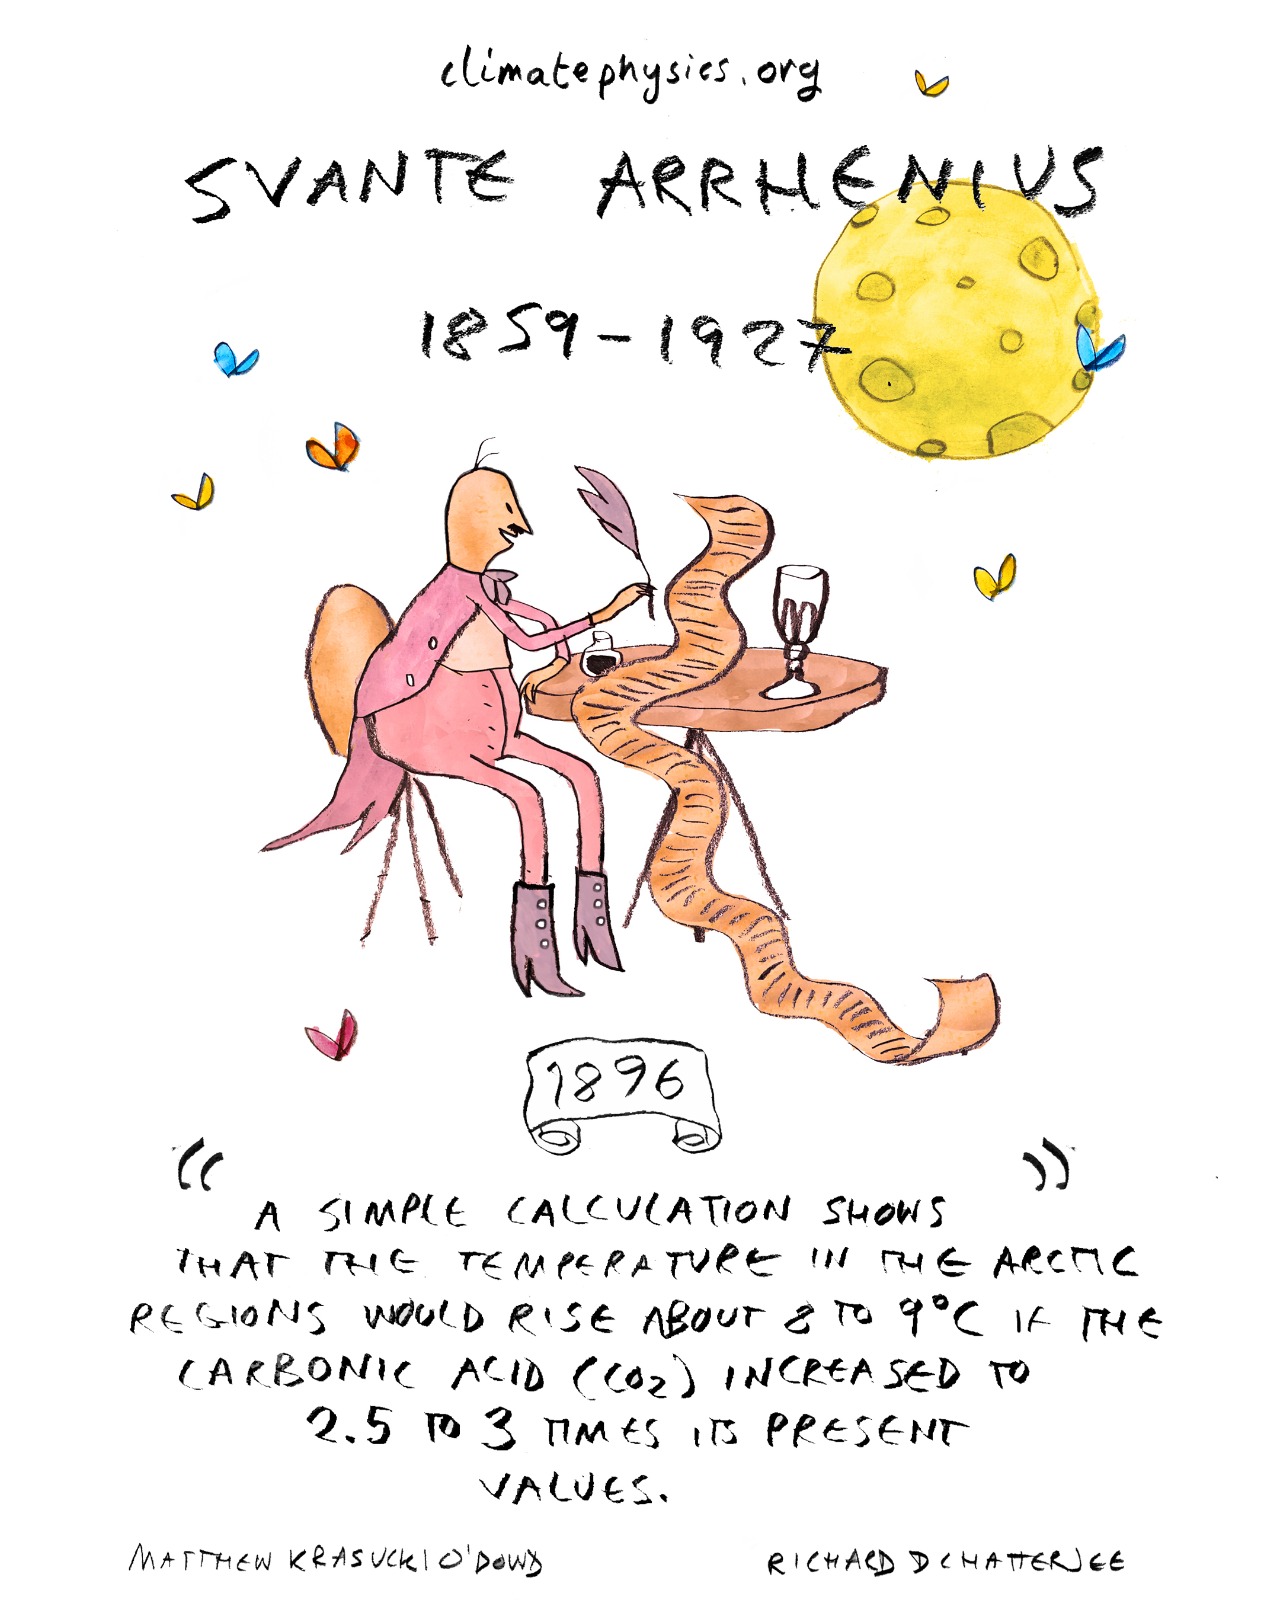 climatephysics.org
SVANTE ARRHENIUS
1859-1927
1896
"
"
A SIMPLE CALCULATION SHOWS
THAT THE TEMPERATURE IN THE ARCTIC
REGIONS WOULD RISE ABOUT 8 TO 9°C IF THE
CARBONIC ACID (CO2) INCREASED TO
2.5 TO 3 TIMES ITS PRESENT
VALUES.
MATTHEW KRASUCKI O'DOWD
RICHARD D CHATTERJEE